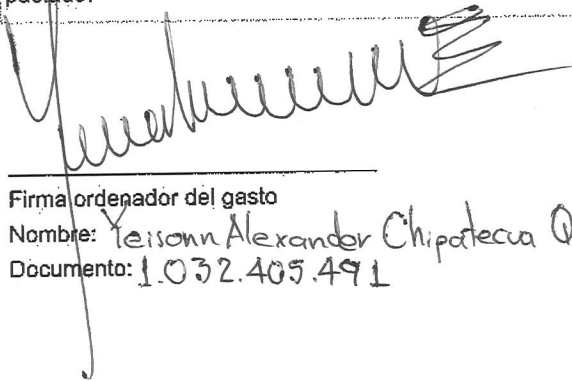 pactado.
Firma ordenador del gasto
Nombre: Yeisonn Alexander Chipatecua Q
Documento: 1.032.405.491